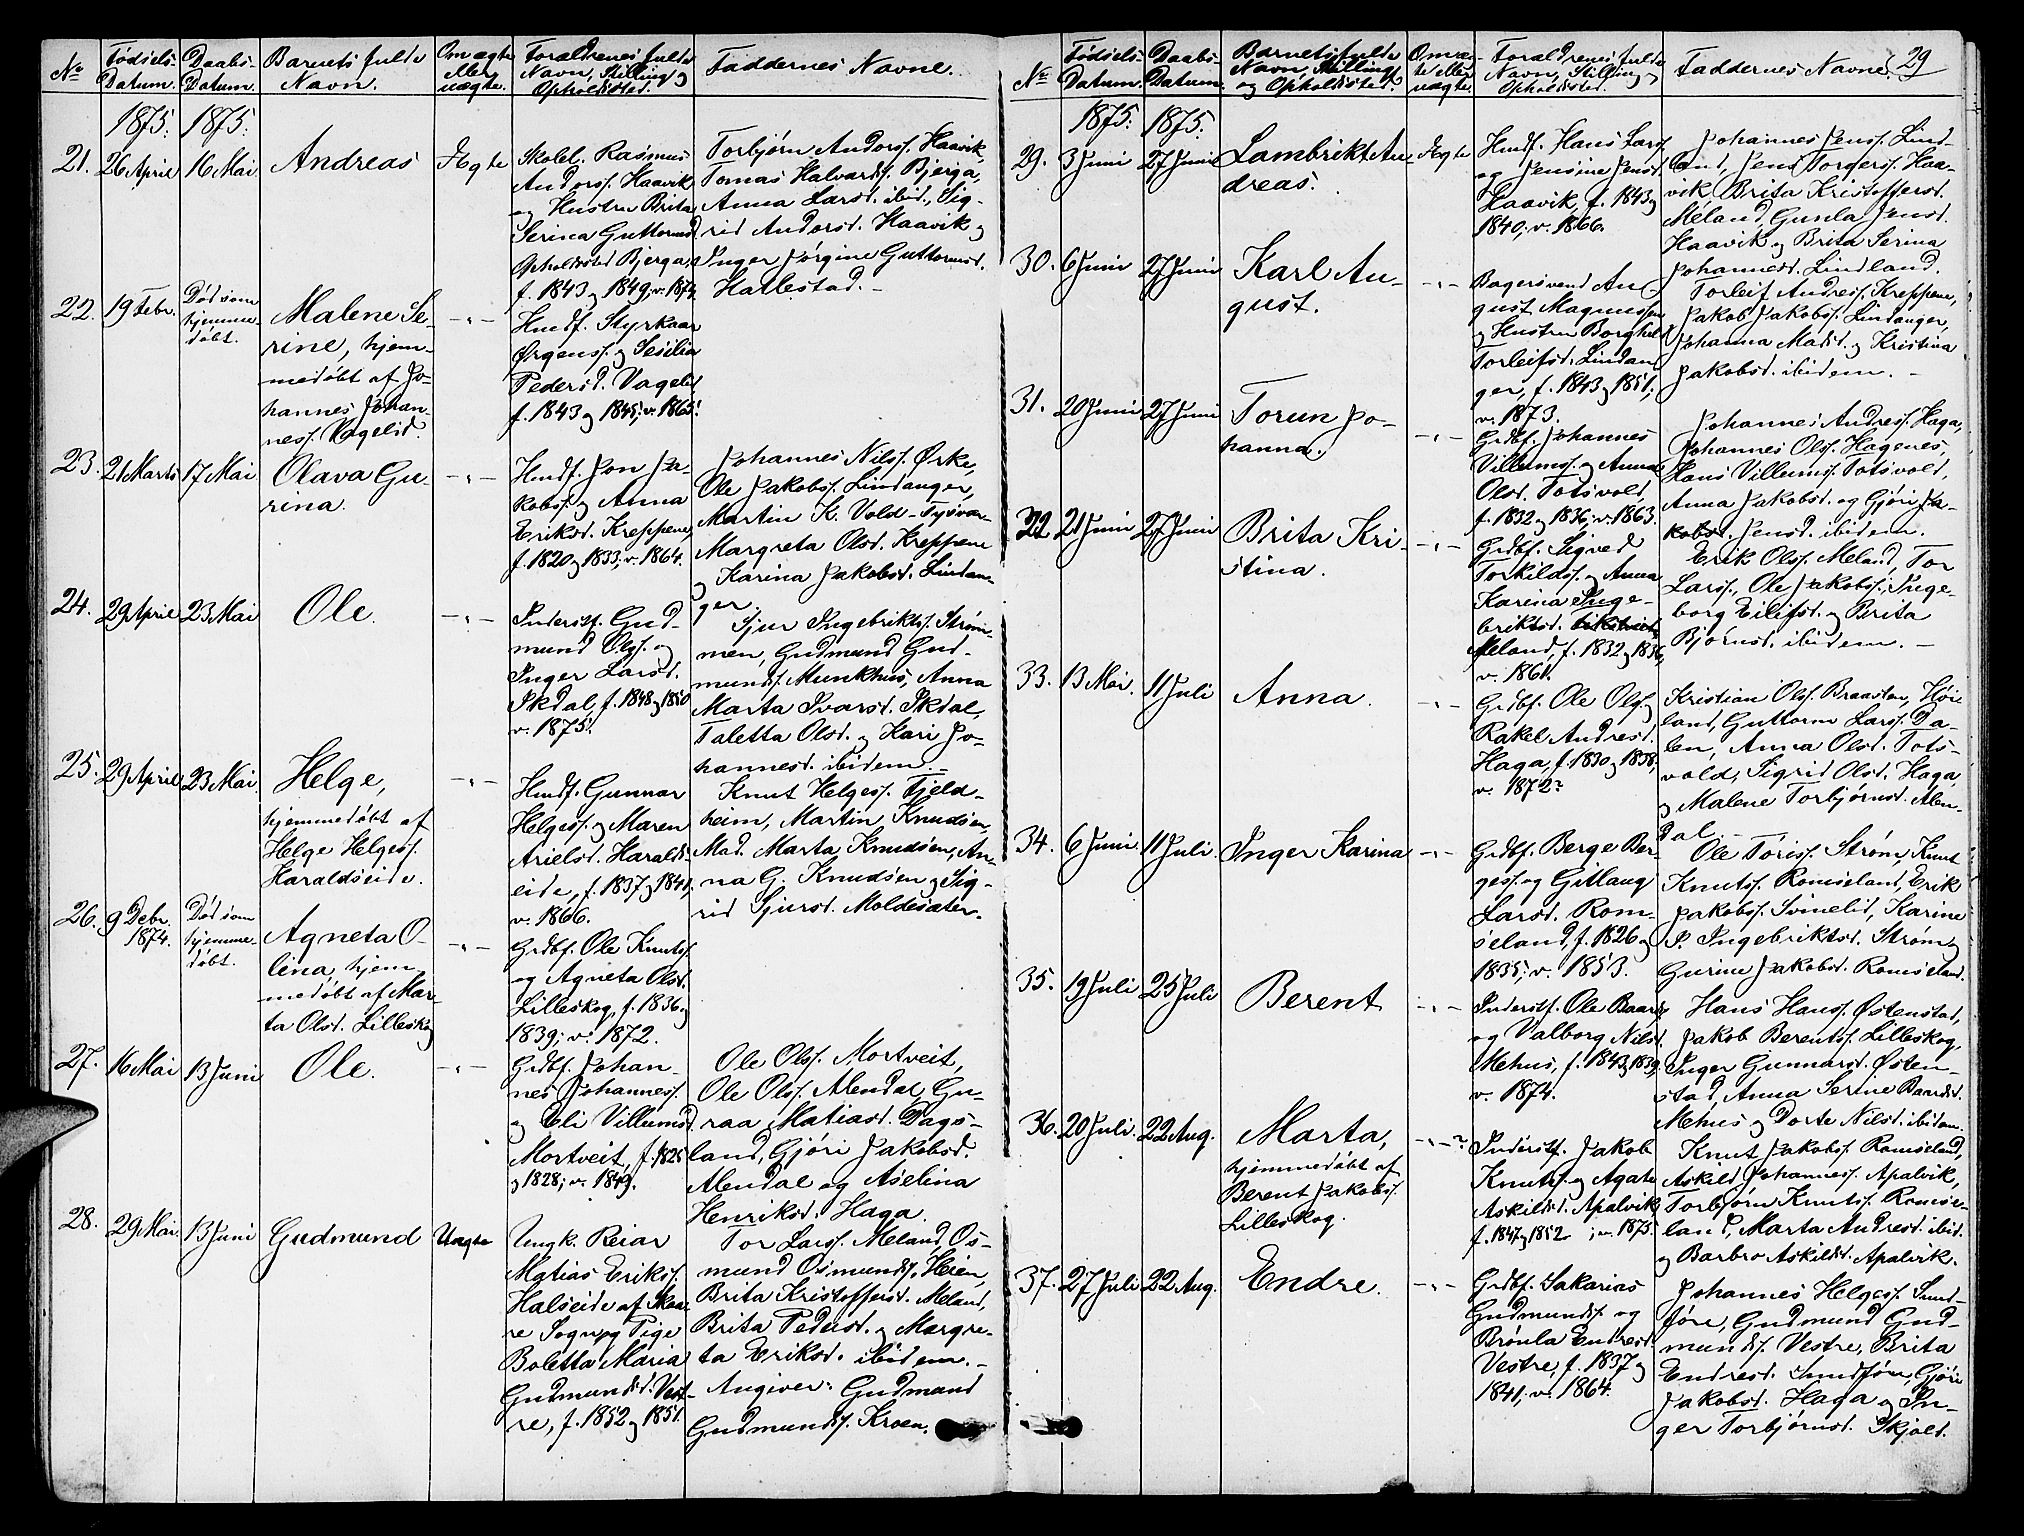 No
Fødsels-
Datum.
Daabs-
Datum.
Barnets fulde
Navn.
Om ægte
eller
uægte.
Forældrenes fulde
Navn, Stilling og
Opholdssted.
Faddernes Navne.
1875.
1875.
21.
26 April
16 Mai
Andreas
Ægte
Skolel. Rasmus
Andorss. Haavik
og Hustru Brita
Serina Guttormsd.
Opholdssted Bjerga,
f. 1843 og 1849; v. 1874.
Torbjørn Andorss. Haavik,
Tomas Halvards. Bjerga,
Anna Larsd. ibid., Sig-
rid Andorsd. Haavik og
Inger Jørgine Guttormsd.
Hallestad. -
22.
19 Febr.
Død som
hjemme-
døbt.
Malene Se-
rine, hjem-
medøbt af Jo-
hannes Johan-
ness. Vagelid.
- " -
Hmdf. Styrkaar
Ørgenss. og Sesilia
Pedersd. Vagelid
f. 1843 og 1845; v. 1865.
23.
21 Marts
17 Mai
Olava Gu-
rina.
- " -
Hmdf. Jon Ja-
kobss. og Anna
Eriksd. Kreppene,
f. 1820 og 1833; v. 1864.
Johannes Nilss. Ørke,
Ole Jakobss. Lindanger,
Martin K. Vold - Tysvær
Margreta Olsd. Kreppene
og Karina Jakobsd. Lindan-
ger
24.
29 April
23 Mai
Ole.
- " -
Inderstf. Gud-
mund Olss. og
Inger Larsd.
Skdal, f. 1848 og 1850
v. 1875.
Sjur Ingebriktss. Strøm-
men, Gudmund Gud-
munds. Munkhus, Anna
Marta Ivarsd. Skdal,
Taletta Olsd. og Kari Jo-
hannesd. ibidem. -
25.
29 April
23 Mai
Helge,
hjemmedøbt af
Helge Helgess.
Haraldseide.
- " -
Hmdf. Gunnar
Helgess. og Maren
Arielsd. Haralds-
eide, f. 1837 og 1841,
v. 1866.
Knut Helgess. Fjeld-
heim, Martin Knudsen,
Mad. Marta Knudsen, An-
na G. Knudsen og Sig-
rid Sjursd. Moldesæter.
26.
9 Debr.
1874.
Død som
hjemme-
døbt.
Agneta O-
lina, hjem-
medøbt af Mar-
ta Olsd. Lilleskog
- " -
Grdbf. Ole Knuts.
og Agneta Olsd.
Lilleskog, f. 1836 og
1839; v. 1872.
27.
16 Mai
13 Juni
Ole.
- " -
Grdbf. Johan-
nes Johanness.
og Eli Villumsd.
Mortveit, f. 1825
og 1828; v. 1849.
Ole Olss. Mortveit,
Ole Olss. Alendal, Gu-
raa Matiasd. Dags-
land, Gjøri Jakobsd.
Alendal og Aselina
Henriksd. Haga.
28.
29 Mai.
13 Juni
Gudmund
Uægte
Ungk. Reiar
Matias Erikss.
Halseide af Skaa-
re Sogn og Pige
Boletta Maria
Gudmundsd. Vest-
re, f. 1852 og 1851.
Tor Larss. Meland, Os-
mund Osmunds. Heien,
Brita Kristoffersd. Meland,
Brita Pedersd. og Margre-
ta Eriksd. ibidem. -
Angiver: Gudmund
Gudmunds. Kroen.
29
No
Fødsels-
Datum.
Daabs-
Datum.
Barnets fulde
Navn, Stilling
og Opholdssted.
Om æg-
te eller
uægte.
Forældrenes fulde
Navn, Stilling og
Opholdssted.
Faddernes Navne.
1875.
1875.
29.
3 Juni
27 Juni
Lambrikt An-
dreas.
Ægte
Hmdf. Hans Larss.
og Jensine Jensd.
Haavik, f. 1843 og
1840; v. 1866.
Johannes Jenss. Lind-
land, Jens Torgerss. Haa-
vik, Brita Kristoffersd.
Meland, Gunla Jensd.
Haavik og Brita Serina
Johannesd. Lindland.
30.
6 Juni
27 Juni
Karl Au-
gust.
- " -
Bagersvend Au-
gust Magnussen
og Hustru Borghild
Torleifsd. Lindan-
ger, f. 1843 og 1851;
v. 1873.
Torleif Andress. Kreppene,
Jakob Jakobss. Lindanger,
Johanna Madsd. og Kristina
Jakobsd. ibidem. -
31.
20 Juni
27 Juni
Torun Jo-
hanna.
- " -
Grdbf. Johannes
Villumss. og Anna
Olsd. Totsvold,
f. 1832 og 1836; v. 1863.
Johannes Andress. Haga,
Johannes Olss. Hagenes,
Hans Villums. Totsvold,
Anna Jakobsd. og Gjøri Ja-
kobsd. Jensd. ibidem.
32
21 Juni
27 Juni
Brita Kri-
stina.
- " -
Grdbf. Sigved
Torkildss. og Anna
Karina Inge-
briktsd.
Meland, f. 1832 og 1836,
v. 1861.
Erik Olss. Meland, Tor
Larss., Ole Jakobss., Inge-
borg Eilifsd. og Berita
Bjørnsd. ibidem. -
33.
13 Mai.
11 Juli
Anna.
- " -
Grdbf. Ole Olss. og
Rakel Andresd.
Haga, f. 1830 og 1838,
v. 1872?
Kristian Olss. Braasten, Høie
land, Guttorm Larss. Da-
len, Anna Olsd. Tots-
vold, Sigrid Olsd. Haga,
og Malene Torbjørnsd. Alen-
dal -
34.
6 Juni
11 Juli.
Inger Karina
- " -
Grdbf. Berge Ber-
gess. og Gitlaug
Larsd. Rom-
seland, f. 1826 og
1835; v. 1853.
Ole Toriss. Strøm, Knut
Knutss. Romseland, Erik
Jakobss. Svinelid, Karine
P. Ingebriktsd. Strøm og
Gurine Jakobsd. Romseland.
35.
19 Juli
25 Juli
Berent
- " -
Inderstf. Ole Baards.
og Valborg Nilsd.
Mehus, f. 1843 og 1839,
v. 1874.
Hans Hanss. Østenstad,
Jakob Berents. Lilleskog,
Inger Gunnarsd. Østen-
stad, Anna Serine Baardsd.
Mehus og Dorte Nilsd. ibidem.
36.
20 Juli.
22 Aug.
Marta,
hjemmedøbt af
Berent Jakobs.
Lilleskog.
- " - ?
Inderstf. Jakob
Knutss. og Agata
Askildsd. Apalvik,
f. 1847 og 1852 ; v. 1875.
Knut Jakobss. Romseland,
Askild Johanness. Apalvik,
Torbjørn Knutss. Romse-
land, Marta Andresd. ibid.
og Barbro Askildsd. Apalvik.
37.
27 Juli
22 Aug.
Endre.
- " -
Grdbf. Sakarias
Gudmunds. og
Brønla Endresd.
Vestre, f. 1837 og
1841; v. 1864.
Johannes Helgess. Sund-
føre, Gudmund Gud-
munds. Vestre, Brita
Endresd. Sundføre, Gjøri
Jakobsd. Haga og In-
ger Torbjørnsd. Skjold.